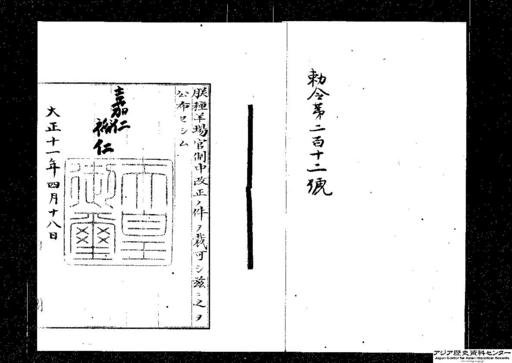 勅令第二百十二號
朕種羊場官制中改正ノ件ヲ裁可シ茲ニ之ヲ
公布セシム
嘉仁
裕仁
天皇御璽
大正十一年四月十八日
アジア歴史資料センター
Japan Center for Asian Historical Records